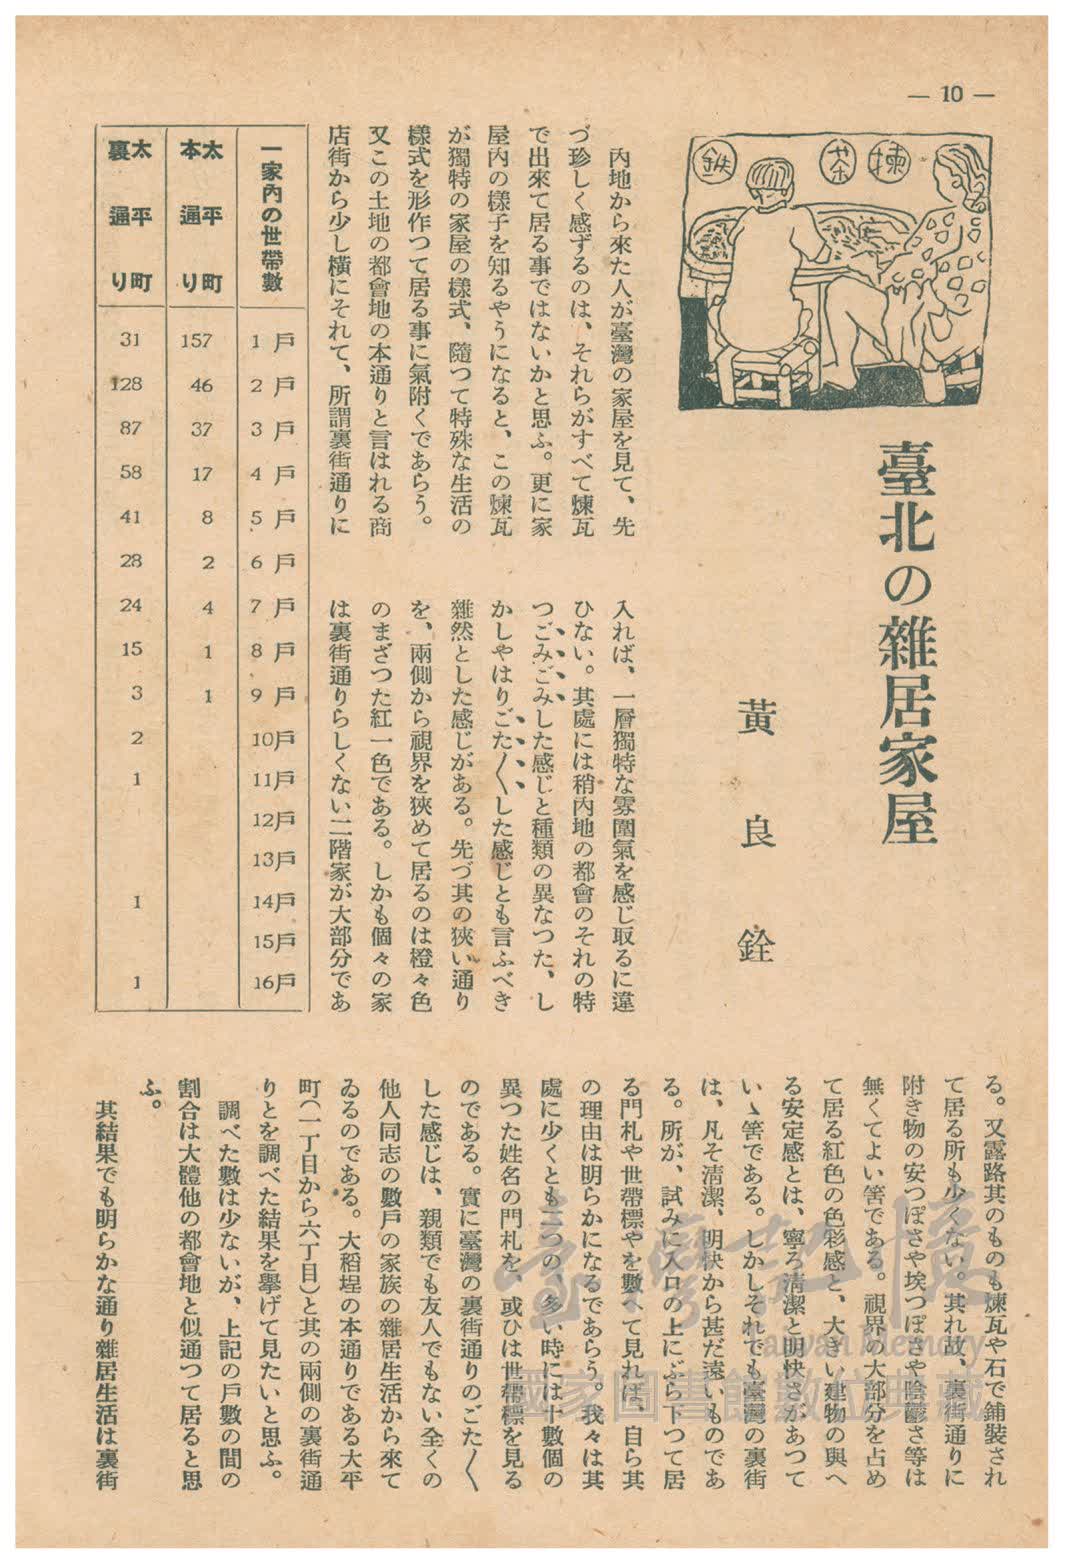 — 10 —
鉄 茶 揀
臺北の雜居家屋
黃良銓
內地から來た人が臺灣の家屋を見て、先
づ珍しく感ずるのは、それらがすべて煉瓦
で出來て居る事ではないかと思ふ。更に家
屋內の樣子を知るやうになると、この煉瓦
が獨特の家屋の樣式、隨つて特殊な生活の
樣式を形作つて居る事に氣附くであらう。
又この土地の都會地の本通りと言はれる商
店街から少し橫にそれて、所謂裏街通りに
入れば、一層獨特な雰圍氣を感じ取るに違
ひない。其處には稍內地の都會のそれの特
つごみごみした感じと種類の異なつた、し
かしやはりごた〱した感じとも言ふべき
雜然とした感じがある。先づ其の狹い通り
を、兩側から視界を狹めて居るのは橙々色
のまざつた紅一色である。しかも個々の家
は裏街通りらしくない二階家が大部分であ
一家內の世帶數 太平町本通り 太平町裏通り
1戶 157 31
2戶 46 128
3戶 37 87
4戶 17 58
5戶 8 41
6戶 2 28
7戶 4 24
8戶 1 15
9戶 1 3
10戶 2
11戶 1
12戶
13戶
14戶 1
15戶
16戶 1
る。又露路其のものも煉瓦や石で鋪裝され
て居る所も少くない。其れ故、裏街通りに
附き物の安つぽさや埃つぽさや陰鬱さ等は
無くてよい筈である。視界の大部分を占め
て居る紅色の色彩感と、大きい建物の與へ
る安定感とは、寧ろ淸潔と明快さがあつて
いゝ筈である。しかしそれでも臺灣の裏街
は、凡そ淸潔、明快から甚だ遠いものであ
る。所が、試みに入口の上にぶら下つて居
る門札や世帶標やを數へて見れば、自ら其
の理由は明らかになるであらう。我々は其
處に少くとも二つの、多い時には十數個の
異つた姓名の門札を、或ひは世帶標を見る
のである。實に臺灣の裏街通りのごた〱
した感じは、親類でも友人でもない全くの
他人同志の數戶の家族の雜居生活から來て
ゐるのである。大稻埕の本通りである太平
町(一丁目から六丁目)と其の兩側の裏街通
りとを調べた結果を擧げて見たいと思ふ。
調べた數は少ないが、上記の戶數の間の
割合は大體他の都會地と似通つて居ると思
ふ。
其結果でも明らかな通り雜居生活は裏街
臺灣記憶
Taiwan Memory
國家圖書館數位典藏